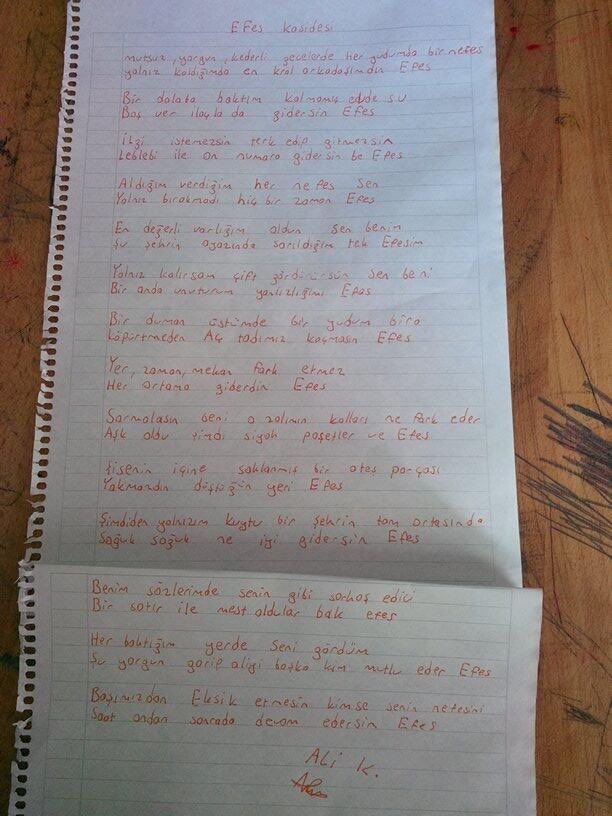 Efes kasidesi
mutsuz, yorgun, kederli gecelerde her yudumda bir nefes
yalnız kaldığımda en kral arkadaşımdın Efes
Bir dolaba baktım kalmamış evde su
Boş ver ilaçla da gidersin Efes
İlgi istemezsin terk edip gitmezsin
Leblebi ile on numara gidersin be Efes
Aldığım verdiğim her nefes sen
Yalnız bırakmadı hiç bir zaman Efes
En değerli varlığım oldun sen benim
Şu şehrin ayazında sarıldığım tek Efesim
Yalnız kalırsam çift gördürürsün sen beni
Bir anda unuturum yanlızlığımı Efes
Bir duman üstümde bir yudum bira
Köpürtmeden Aç tadımız kaçmasın Efes
Yer, zaman, mekan fark etmez
Her ortama giderdin Efes
Sarmalasın beni o zalimin kolları ne fark eder
Aşk oldu şimdi siyah poşetler ve Efes
Şişenin içine saklanmış bir ateş parçası
Yakmazdın düştüğün yeri Efes
Şimdiden yalnızım kuytu bir şehrin tam ortasında
Soğuk soğuk ne iyi gidersin Efes
Benim sözlerimde senin gibi sarhoş edici
Bir satır ile mest oldular bak efes
Her baktığım yerde seni gördüm
Şu yorgun garip aliyi başka kim mutlu eder Efes
Başımızdan Eksik etmesin kimse senin nefesini
Saat ondan sonrada devam edersin Efes
Ali K.